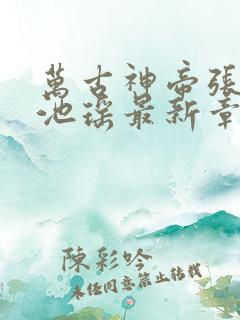 萬古神帝張
池瑤最新章
陳彩吟
未经同意禁止转载